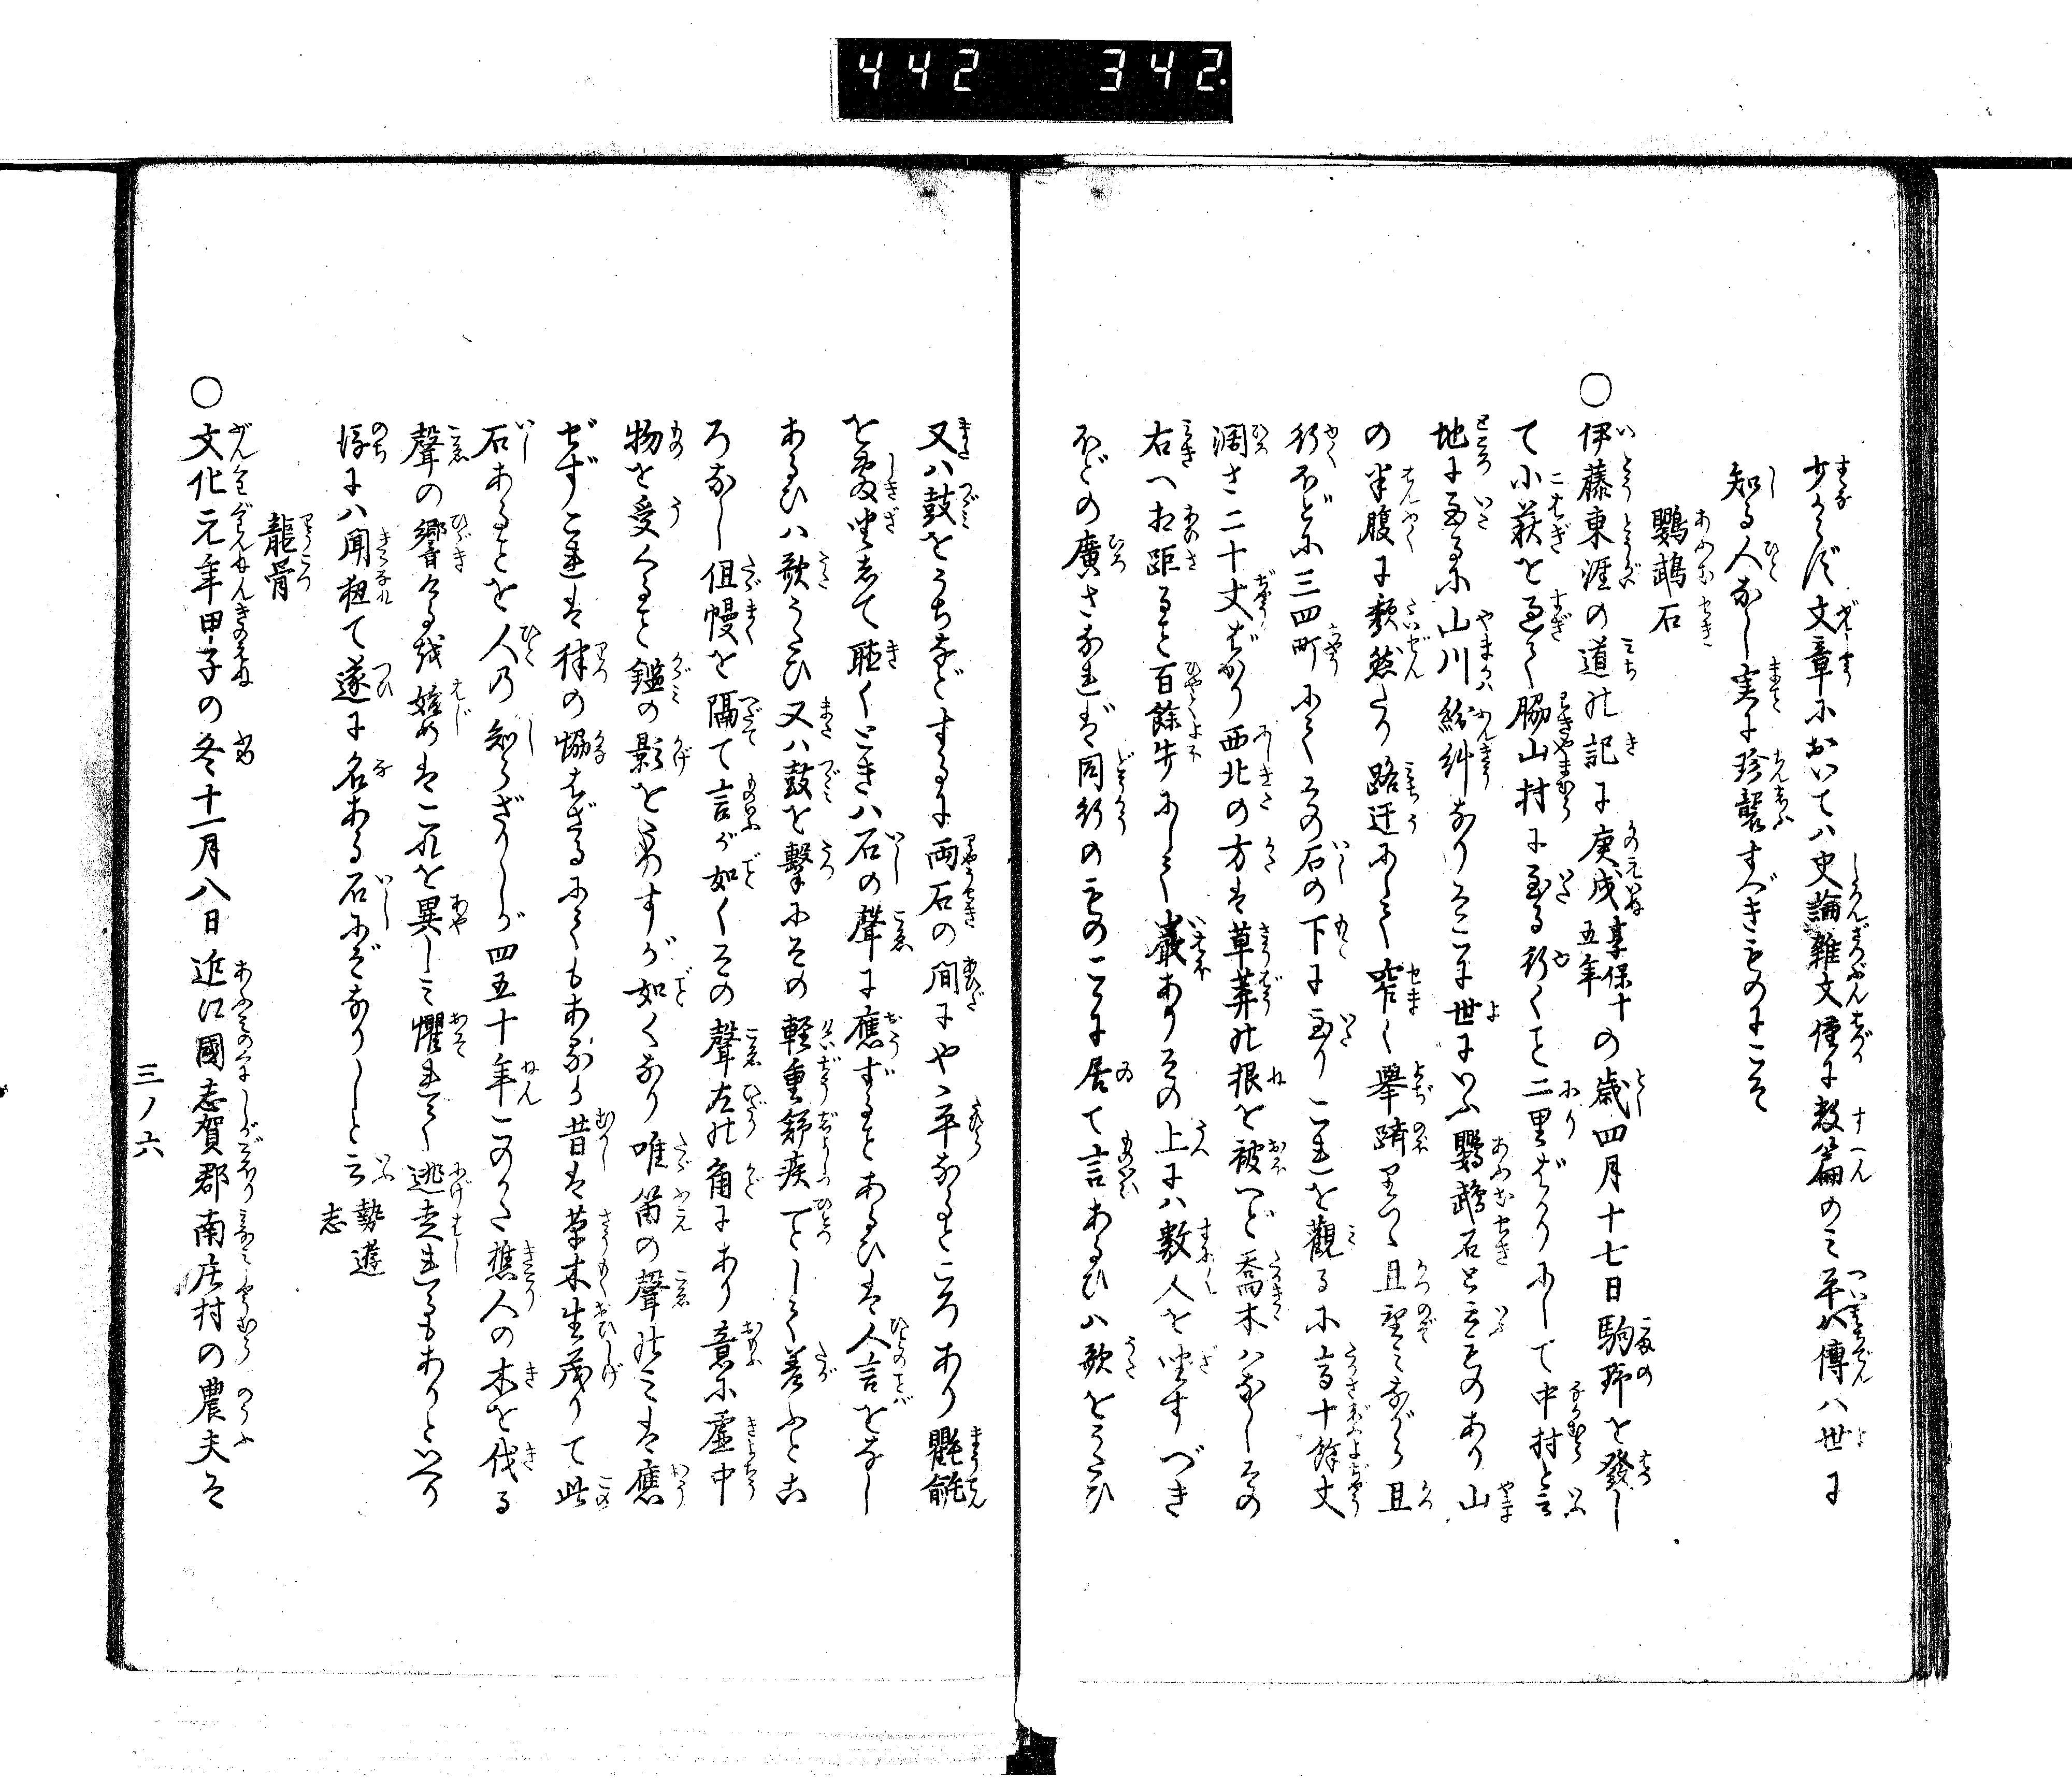 442 342.
少からず文章においては史論雑文僅に数篇のミ平八傳ハ世に
知る人なし実に珍襲すべきものにこそ
鸚鵡石
○伊藤東涯の道の記に庚戌享保十五年の歳四月十七日駒野を發し
て小萩を過て脇山村に至る行くこと二里ばかりにして中村と言
地に至るに山川紛糾なりそこに世にいふ鸚鵡石と云ものあり山
の半腹に頽然たり路迂にして窄し擧躋つゝ且望ミながら且
行ほどに三四町にしてその石の下に至りこれを觀るに高十餘丈
濶さ二十丈ばかり西北の方は草莽の根を被へど喬木ハなしその
右へ相距ること百餘歩にして巖ありその上にハ數人を坐すべき
ほどの廣さなれば同行のものこゝに居て言あるひハ歌をうたひ
又ハ鼓をうちなどするに両石の間にやゝ平なるところあり氍毹
を敷坐して聴くときハ石の聲に應ずることあるひは人言をなし
あるひハ歌うたひ又ハ鼓を撃にその軽重舒疾一として差ふとこ
ろなし但幔を隔て言が如くその聲左の角にあり意に虚中
物を受くること鑑の影をうつすが如くなり唯笛の聲のミは應
ぜずこれは律の協はざるにてもあるか昔は草木生茂りて此
石あることを人乃知らざりしが四五十年このかた樵人の木を伐る
聲の響くるを始めはこれを異しミ懼れて逃走れるもありといへり
後にハ聞狃て遂に名ある石にぞなりしと云勢遊志
龍骨
○文化元年甲子の冬十一月八日近江國志賀郡南庄村の農夫そ
三ノ六